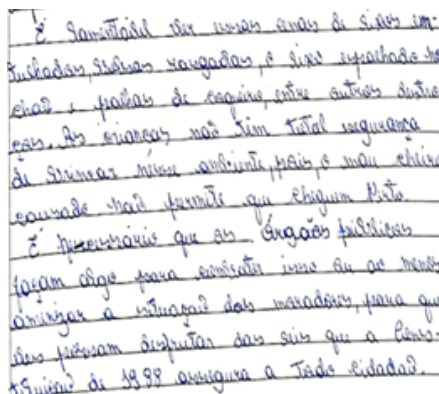 É lamentável ver essas cenas de lixos em-
tulhados, sacolas rasgadas, o lixo espachado no
chão e palhas de coqueiro, entre outros distro
ços. As crianças não têm total segurança
de brincar nesse ambiente, pois, o mau cheiro
causado não permite que cheguem Perto.
É necessário que os Órgãos públicos
façam algo para combater isso ou ao menos
amenizar a situação dos moradores, para que
eles possam desfrutar das leis que a Cons-
tituição de 1988 assegura a Todo Cidadão.